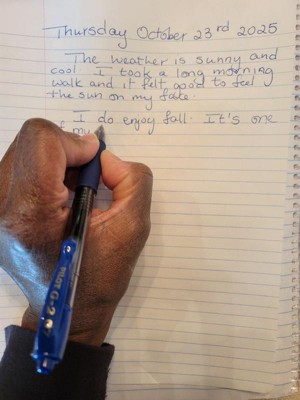 Thursday October 23rd 2025
The weather is sunny and
cool I took a long morning
walk and it felt good to feel
the sun on my face.
I do enjoy fall. It's one
my
PILOT G-2